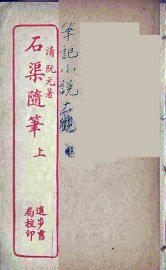 筆記小説大觀
清 阮元著
石渠隨筆 上
進步書局校印